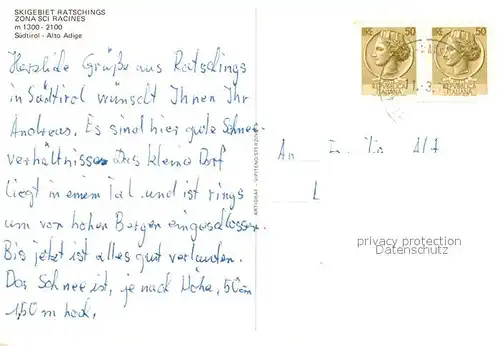 SKIGEBIET RATSCHINGS
ZONA SCI RACINES
m 1300 - 2100
Südtirol - Alto Adige
Herzliche Grüße aus Ratschings
in Südtirol wünscht Ihnen Ihr
Andreas. Es sind hier gute Schnee-
verhältnisse. Das kleine Dorf
liegt in einem Tal und ist rings
um von hohen Bergen eingeschlossen.
Bis jetzt ist alles gut verlaufen.
Das Schnee ist, je nach Höhe, 50cm
1,50 m hoch.
ARTIGRAF - VIPITENO STERZING
LIRE 50
REPUBBLICA
ITALIANA
LIRE 50
REPUBBLICA
ITALIANA
An
privacy protection
Datenschutz